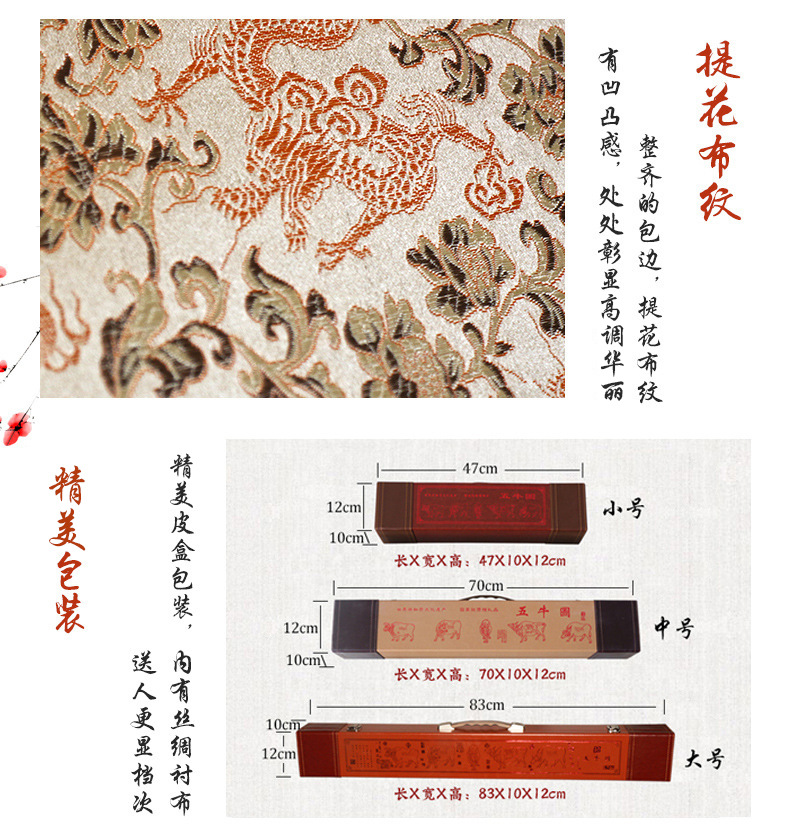 提花布纹
整齐的包边，提花布纹
有凹凸感，处处彰显高调华丽
精美包装
精美皮盒包装，内有丝绸衬布
送人更显档次
47cm
12cm
10cm
五牛图
小号
长X宽X高：47X10X12cm
70cm
12cm
10cm
五牛圖
中号
长X宽X高：70X10X12cm
83cm
10cm
12cm
大号
长X宽X高：83X10X12cm